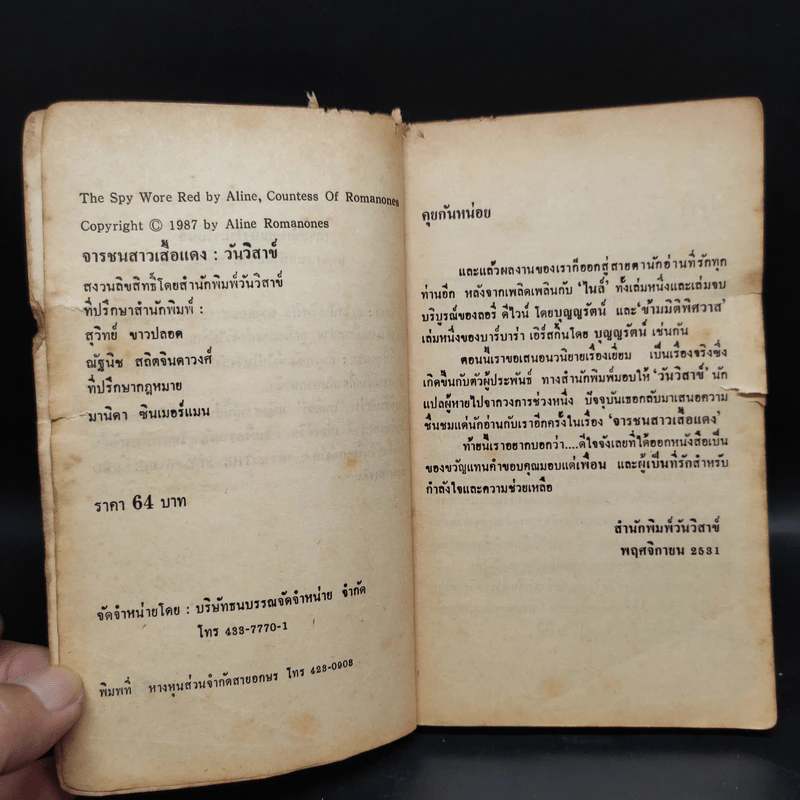 The Spy Wore Red by Aline, Countess Of Romanones
Copyright © 1987 by Aline Romanones
จารชนสาวเสื้อแดง : วันวิสาข์
สงวนลิขสิทธิ์โดยสำนักพิมพ์วันวิสาข์
ที่ปรึกษาสำนักพิมพ์ :
สุวิทย์ ขาวปลอด
ณัฐนิช สถิตจินดาวงศ์
ที่ปรึกษากฎหมาย
มานิดา ซินเมอร์แมน
ราคา 64 บาท
จัดจำหน่ายโดย : บริษัทธนบรรณจัดจำหน่าย จำกัด
โทร 433-7770-1
พิมพ์ที่ หางหุนส่วนจำกัดสายอกษร โทร 423-0903
คุยกันหน่อย
และแล้วผลงานของเราก็ออกสู่สายตานักอ่านที่รักทุก
ท่านอีก หลังจากเพลิดเพลินกับ 'ไนล์' ทั้งเล่มหนึ่งและเล่มจบ
บริบูรณ์ของลอรี่ ดีไวน์ โดยบุญญรัตน์ และ 'ข้ามมิติพิศวาส'
เล่มหนึ่งของบาร์บาร่า เอิร์สกินโดย บุญญรัตน์ เช่นกัน
ตอนนี้เราขอเสนอนวนิยายเรื่องเยี่ยม เป็นเรื่องจริงซึ่ง
เกิดขึ้นกับตัวผู้ประพันธ์ ทางสำนักพิมพ์มอบให้ 'วันวิสาข์' นัก
แปลผู้หายไปจากวงการช่วงหนึ่ง ปัจจุบันเธอกลับมาเสนอความ
ชื่นชมแด่นักอ่านกับเราอีกครั้งในเรื่อง 'จารชนสาวเสื้อแดง'
ท้ายนี้เราอยากบอกว่า....ดีใจจังเลยที่ได้ออกหนังสือเป็น
ของขวัญแทนคำขอบคุณมอบแด่เพื่อน และผู้เป็นที่รักสำหรับ
กำลังใจและความช่วยเหลือ
สำนักพิมพ์วันวิสาข์
พฤศจิกายน 2531